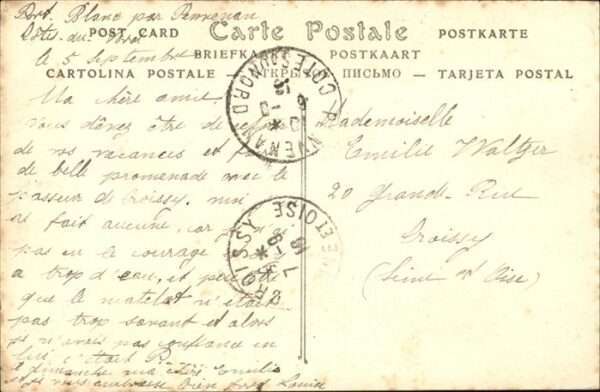 Port Blanc par Penvenan
Côtes-du-Nord
le 5 Septembre
POST CARD Carte Postale POSTKARTE
BRIEFKA POSTKAART
CARTOLINA POSTALE — ОТКР ПИСЬМО — TARJETA POSTAL
PENVENAN
COTES DU NORD
Ma chère amie.
vous devez être de
de vos vacances et
de belle promenade avec le
passeur de Croissy. moi
fait aucune, car je n'ai
pas eu le courage
a trop d'eau, et peut être
que le matelot n'était
pas trop savant et alors
je n'avais pas confiance en
lui c'était
dimanche ma chère Emilie
bien fort Louise
Mademoiselle
Emilie Waltzer
20 Grande-Rue
Croissy
(Seine et Oise)
CROISSY
ET OISE